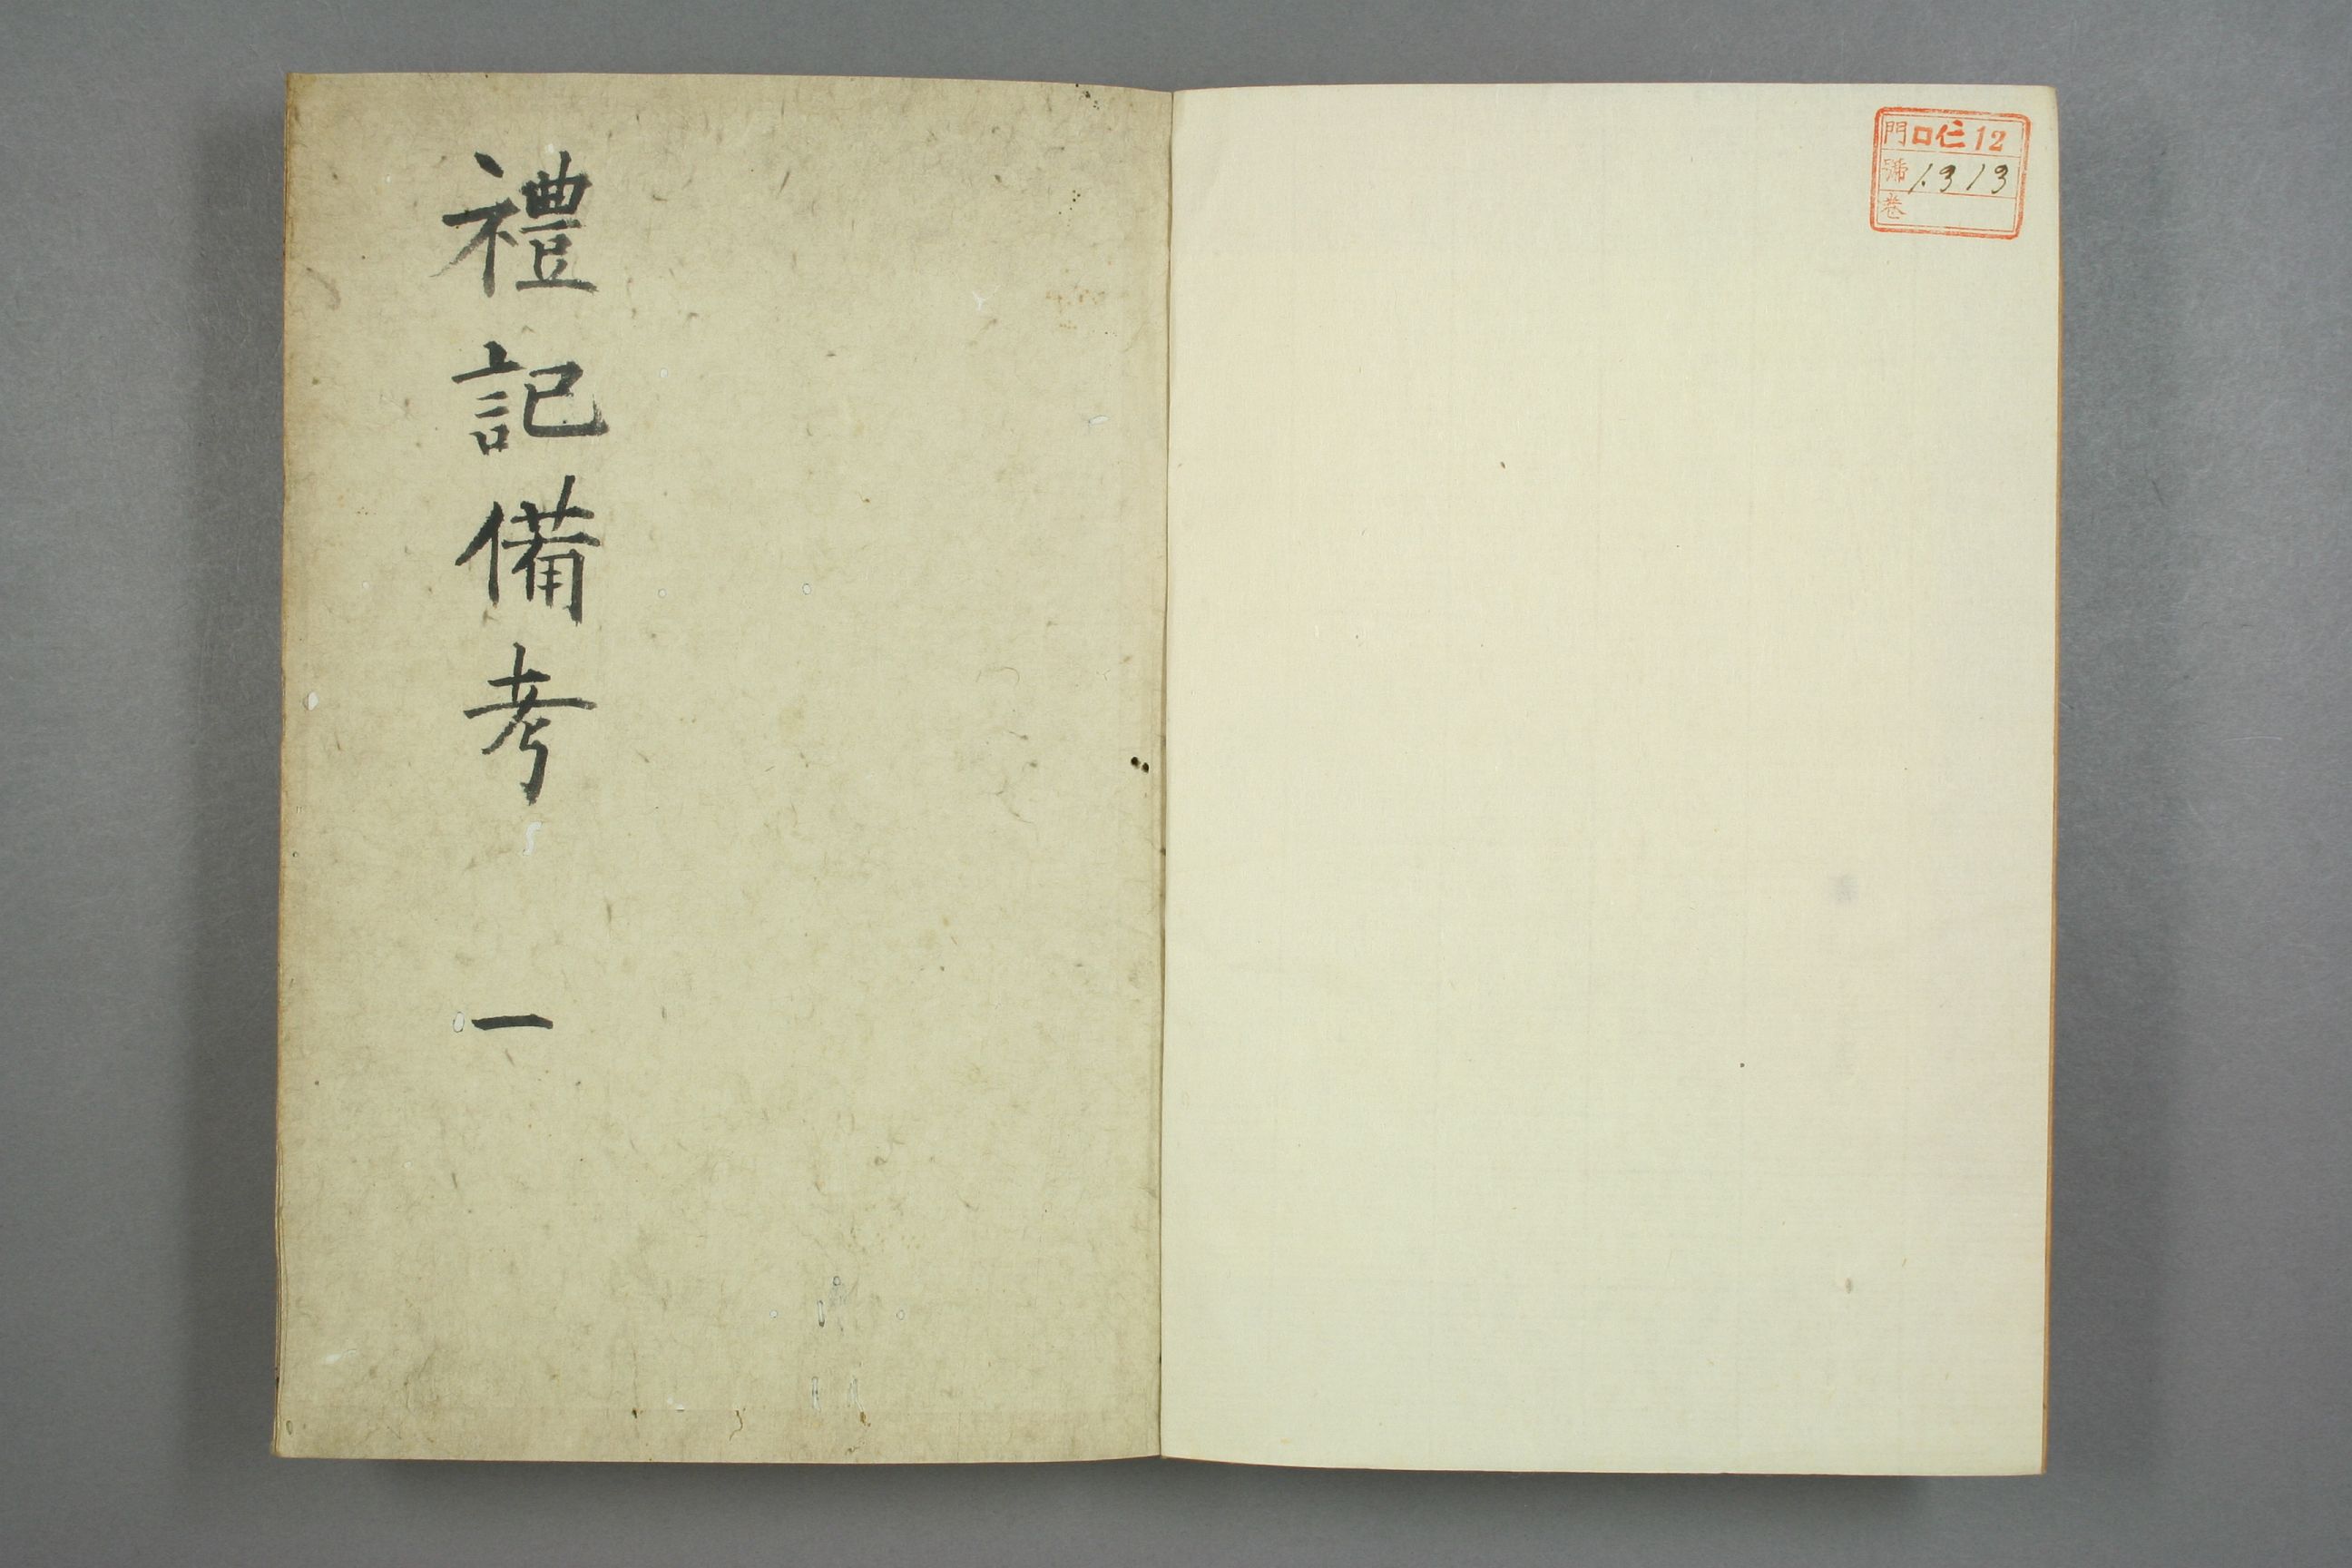 門 口仁12
號 1313
卷
禮記備考 一